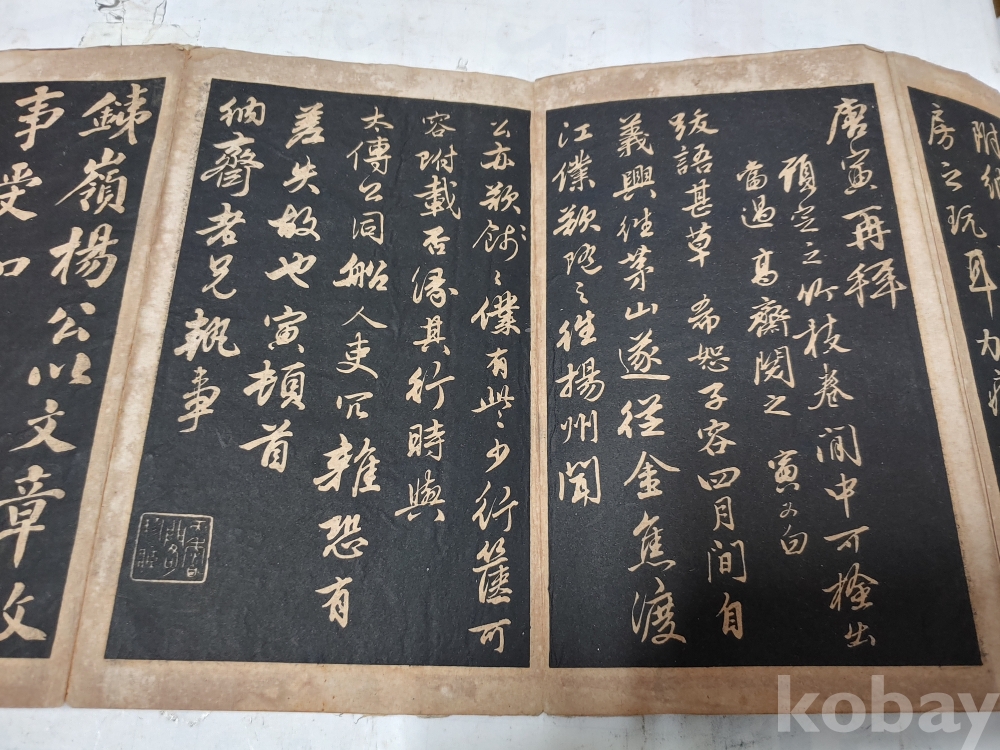 附
房之玩耳
唐寅再拜
頃定之竹枝卷閒中可撿出
當過高齋閱之寅又白
跋語甚草希恕子容四月間自
義興徃茅山遂從金焦渡
江僕欲隨之徃揚州聞
公亦欲餞之僕有些少行篋可
容附載否緣其行時與
太傅公同船人吏冗雜恐有
差失故也寅頓首
納齋老兄執事
銕嶺楊公以文章政
事受知
kobay